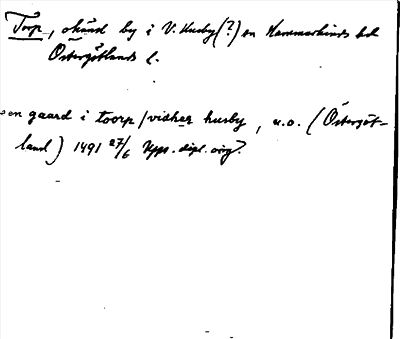 Torp, okänd by i V. Husby (?) sn Hammarkinds hd
Östergötlands l.
en gaard i toorp / vidher husby, u.o. (Östergöt-
land) 1491 27/6 Upps. dipl. orig.